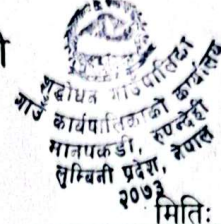 शुद्धोधन गाउँपालिका
गाउँ कार्यपालिकाको कार्यालय
मानपकडी, रुपन्देही
लुम्बिनी प्रदेश, नेपाल
२०७३
मितिः